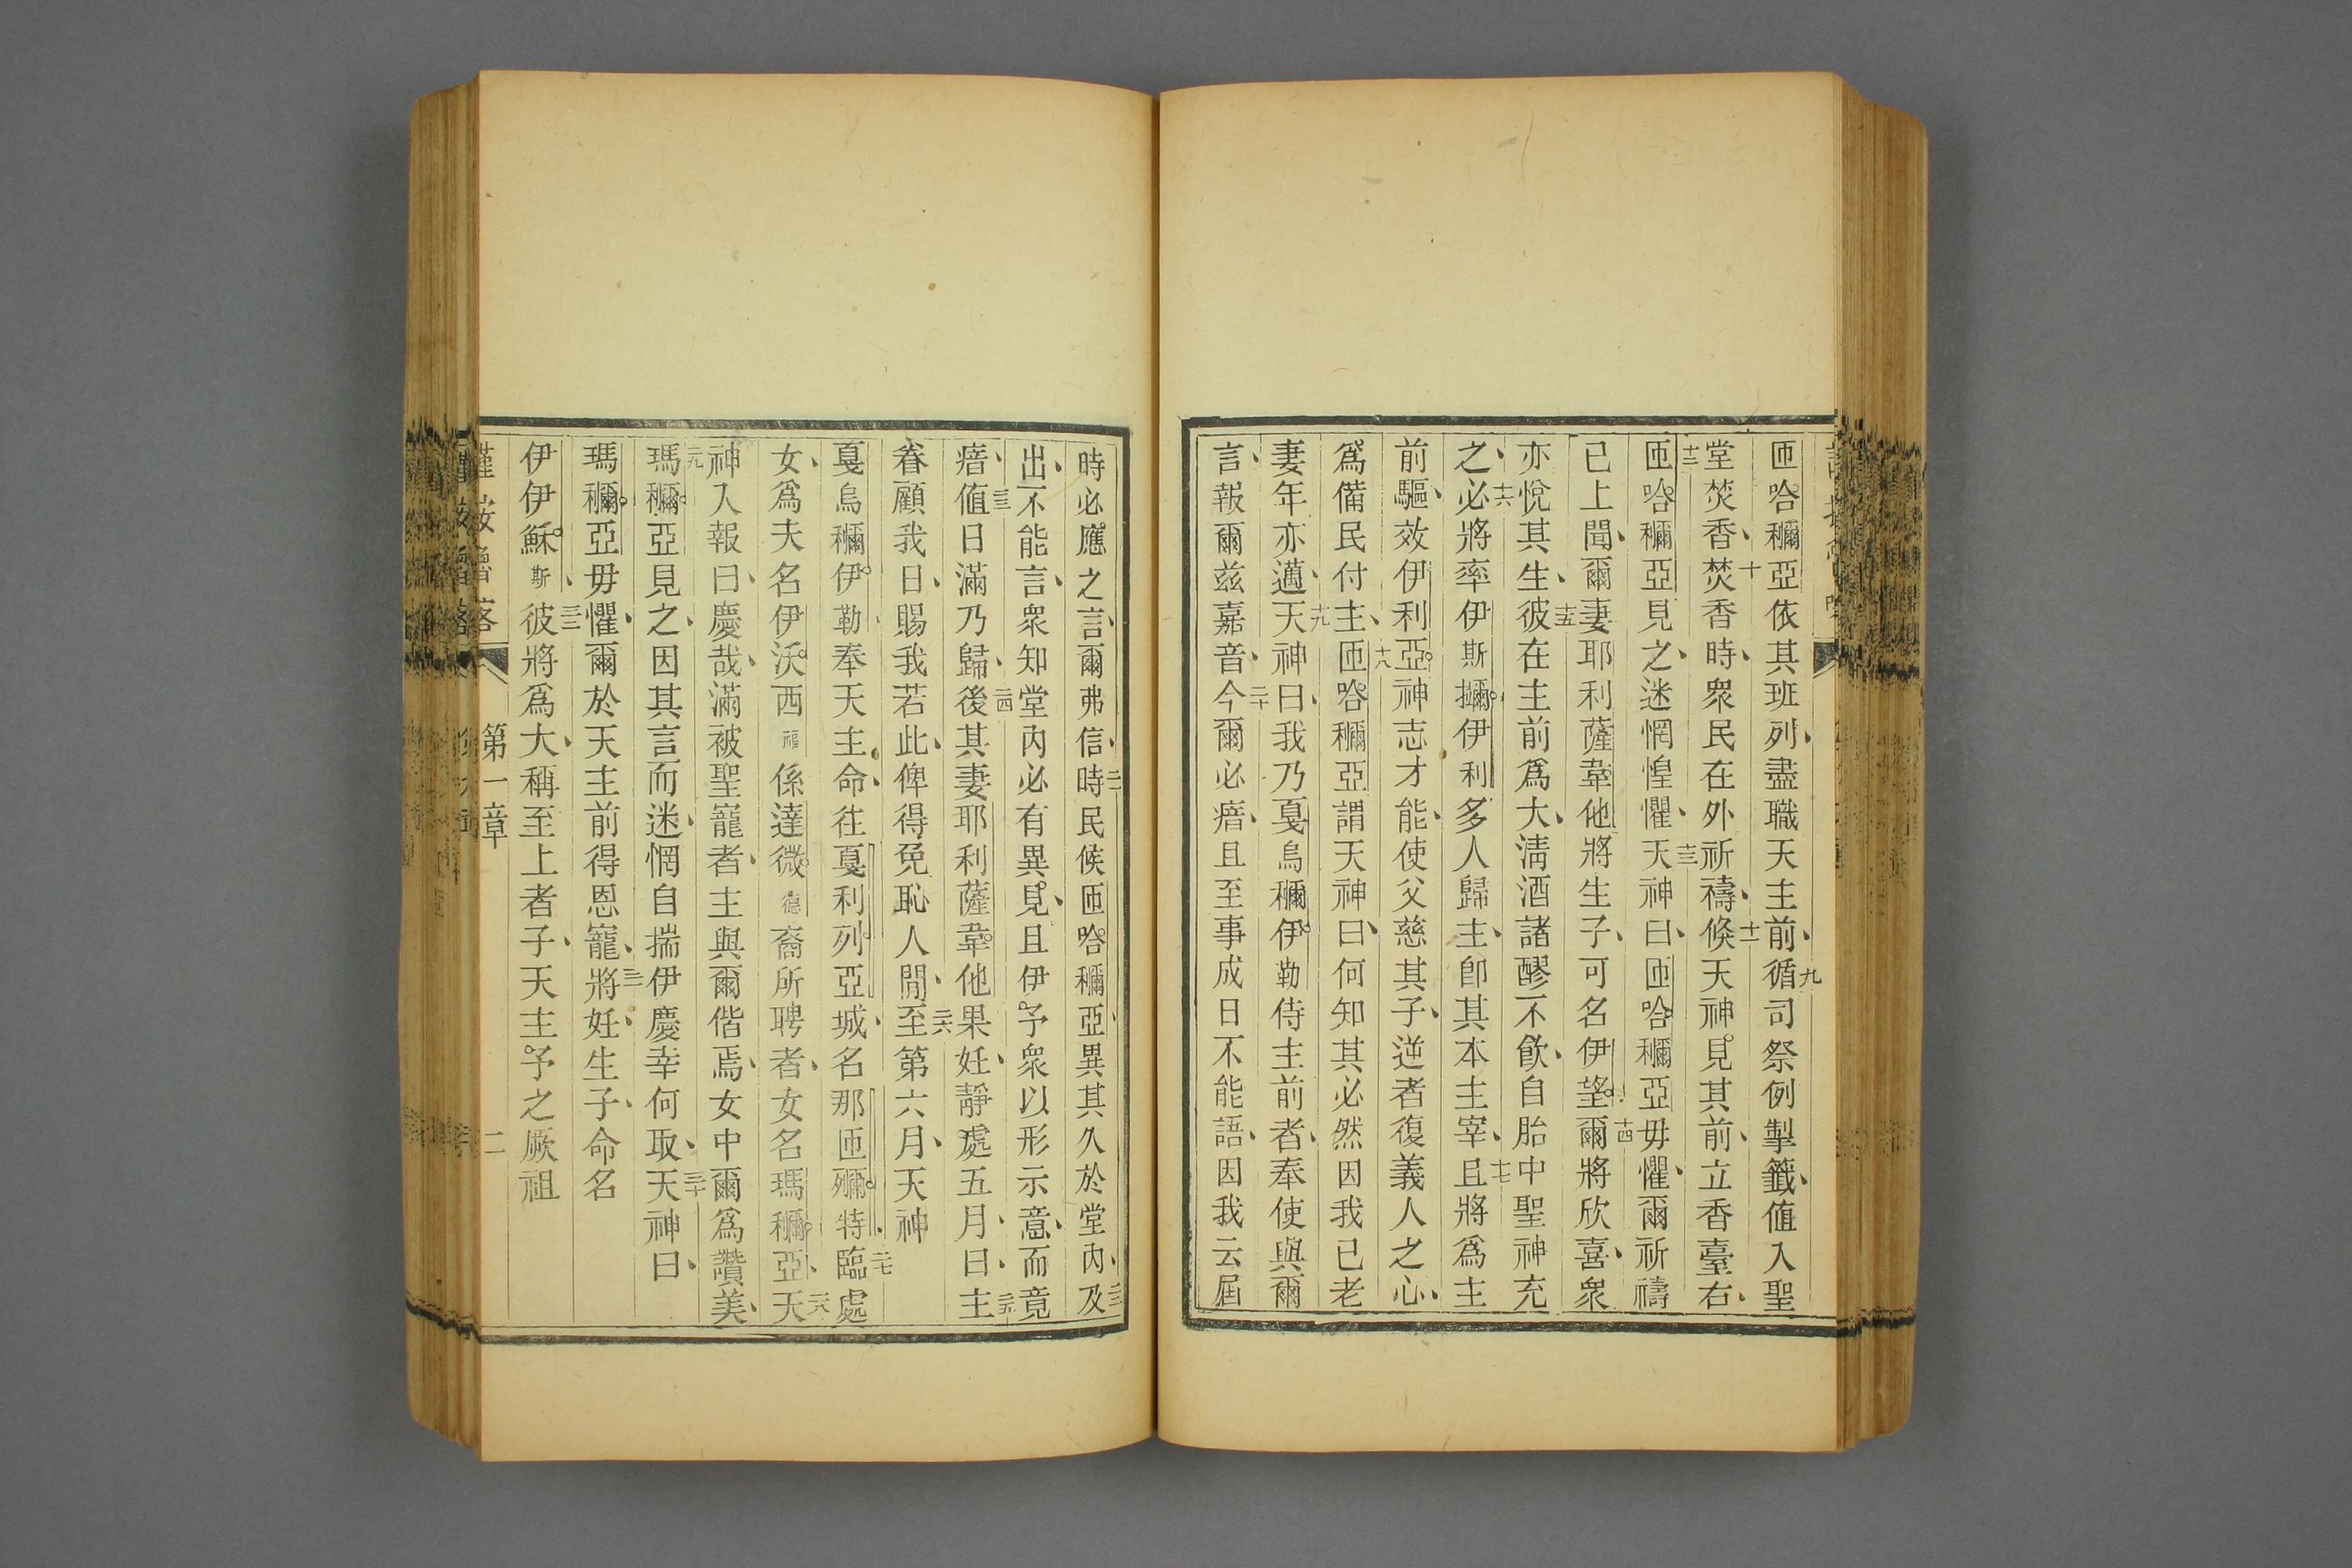 匝哈穪亞依其班列、盡職天主前、九循司祭例掣籤、值入聖
堂焚香、十焚香時、衆民在外祈禱、十一倐天神見其前、立香臺右、
十二匝哈穪亞見之、迷惘惶懼、十三天神曰、匝哈穪亞毋懼、爾祈禱
已上聞、爾妻耶利薩韋他將生子、可名伊望、十四爾將欣喜、衆
亦悅其生、十五彼在主前爲大、淸酒諸醪不飮、自胎中聖神充
之、十六必將率伊斯擟伊利多人歸主、卽其本主宰、十七且將爲主
前驅、效伊利亞神志才能、使父慈其子、逆者復義人之心、
爲備民付主、十八匝哈穪亞謂天神曰、何知其必然因我已老
妻年亦邁、十九天神曰、我乃戛烏穪伊勒侍主前者、奉使與爾
言、報爾兹嘉音、二十今爾必瘖、且至事成日不能語、因我云屆
時必應之言、爾弗信、二一時民候匝哈穪亞、異其久於堂內、二二及
出、不能言、衆知堂內必有異見、且伊予衆以形示意、而竟
瘖、二三值日滿乃歸、二四後其妻耶利薩韋他果妊、靜處五月、曰、二五主
眷顧我日、賜我若此、俾得免恥人閒、二六至第六月、天神
戛烏穪伊勒、奉天主命、往戛利列亞城、名那匝殢特、二七臨處
女、爲夫名伊沃西福係達微德裔所聘者、女名瑪穪亞、二八天
神入報曰、慶哉、滿被聖寵者、主與爾偕焉、女中爾爲讚美、
二九瑪穪亞見之、因其言而迷、惘自揣伊慶幸何取、三十天神曰、
瑪穪亞毋懼、爾於天主前得恩寵、三一將妊、生子、命名
伊伊穌斯、三二彼將爲大、稱至上者子、天主予之厥祖
第一章
二